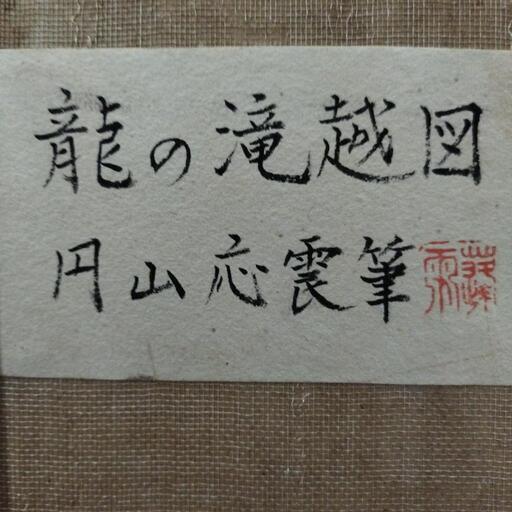 龍の滝越図
円山応震筆